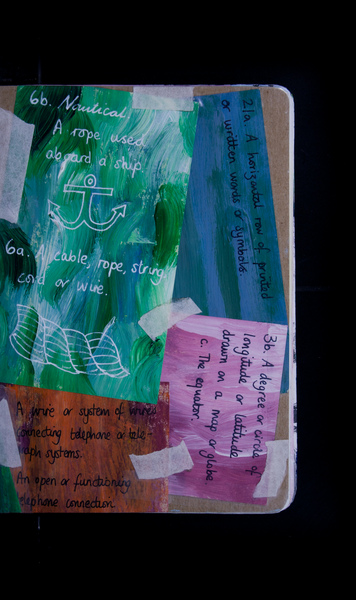 6b. Nautical.
A rope used
aboard a ship.
6a. A cable, rope, string,
cord or wire.
A wire or system of wires
connecting telephone or tele-
graph systems.
An open or functioning
telephone connection.
21a. A horizontal row of printed
or written words or symbols.
3b. A degree or circle of
longitude or latitude
drawn on a map or globe.
c. The equator.